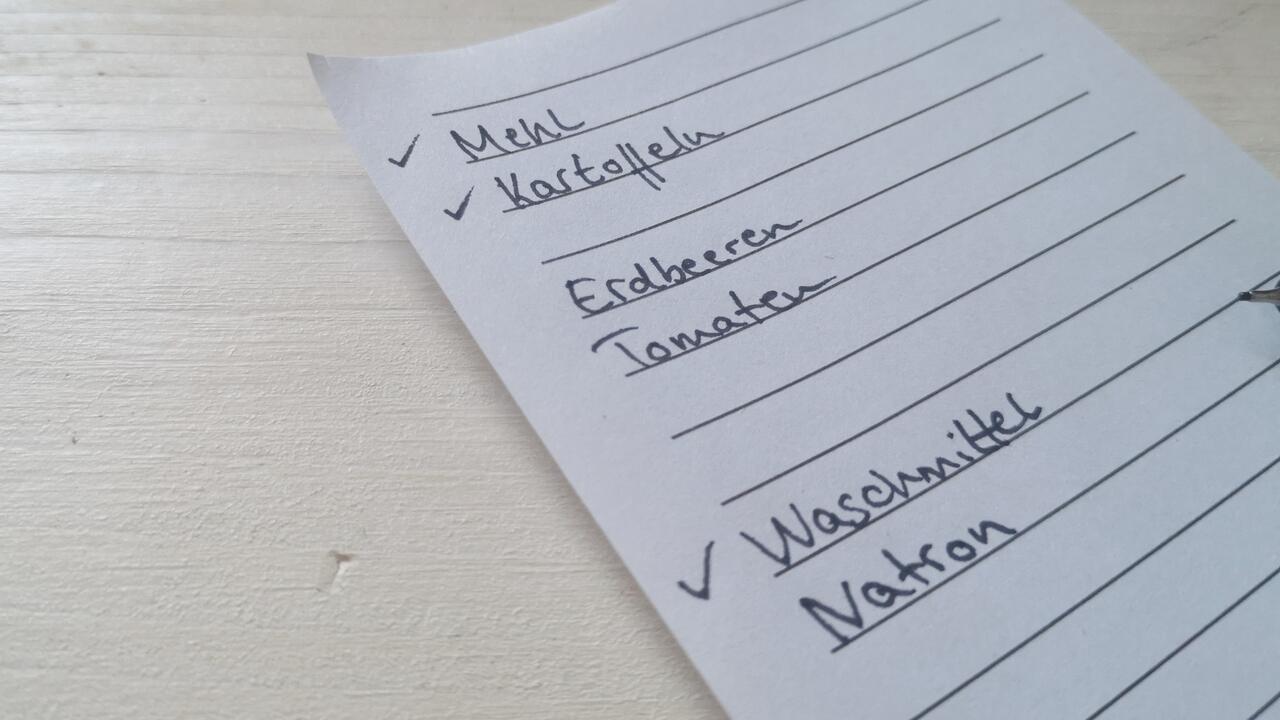 ✓ Mehl
✓ Kartoffeln
Erdbeeren
Tomaten
✓ Waschmittel
Natron